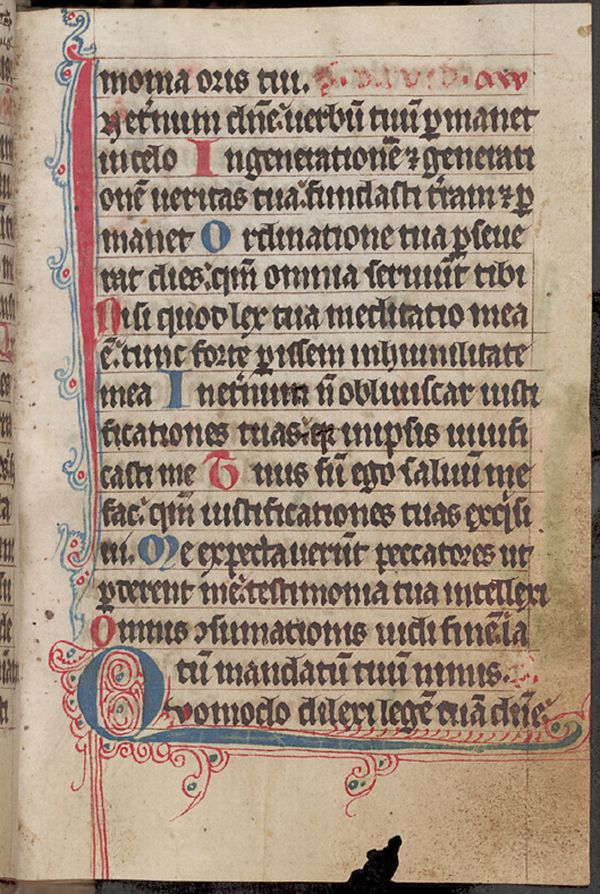 monia oris tui.
N eternum dñe: uerbũ tuũ ꝑmanet
in celo In generationẽ ⁊ generati
onẽ ueritas tua: fundasti t̃ram ⁊ ꝑ
manet Ordinatione tua ꝑseue
rat dies: qm̃ omnia seruiũt tibi
Nisi quod lex tua meditatio mea
ẽ: tunc forte ꝑissem in humilitate
mea In et̃num ñ obliuiscar iusti
ficationes tuas: in ipsis uiuifi
casti me Tuus sũ ego saluũ me
fac: qm̃ iustificationes tuas exq̃si
ui. Me expectauerũt peccatores ut
ꝑderent me: testimonia tua intellexi
Omnis ꝯsumationis uidi finẽ: la
tũ mandatũ tuũ nimis.
Quomodo dilexi legẽ tuã dñe: